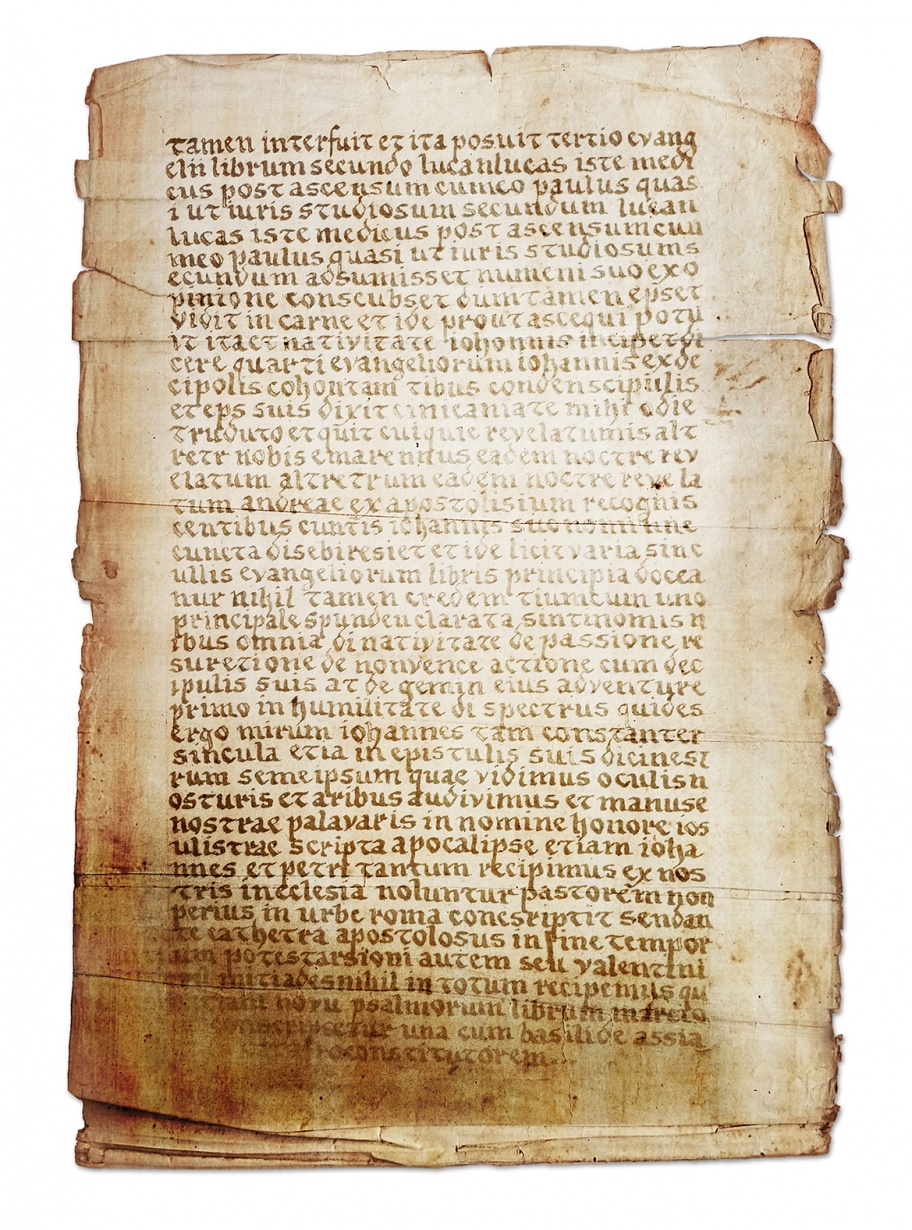 tamen interfuit et ita posuit tertio evang
elii librum secundo lucanlucas iste medi
cus post ascensum cumeo paulus quas
i ut iuris studiosum secundum lucan
lucas iste medicus post ascensum cuu
meo paulus quasi ut iuris studiosums
ecundum adsumisset numeni suo exo
pinione conscubset dum tamen epset
vidit in carne et ide prout ascequi potu
it ita et nativitate iohonnis incipet di
cere quarti evangeliorum iohannis ex de
cipolis cohontam tibus condenscipulis
et eps suis dixit mihi odie
triduto et quit cuiquie revelatumis alt
retr nobis eadem noctre rev
elatum altretrum eadem noctre reve la
tum andreae ex apostolisium recognis
centibus cuntis iohannis suo
cuncta disebiresiet et ide licit varia sinc
ullis evangeliorum libris principia docea
nur nihil tamen credem tiumcum uno
principale clarata sintinomis n
ibus omnia di nativitate de passione re
suretione de nonvence actione cum dec
ipulis suis at de gemin eius adventure
primo in humilitate di spectrus quides
ergo mirum iohannes tam constanter
sincula etia in epistulis suis dicinest
rum semeipsum quae vidimus oculisn
osturis et aribus audivimus et manuse
nostrae palavaris in nomine honore ios
ulistrae scripta apocalipse etiam ioha
nnes et petri tantum recipimus ex nos
tris in eclesia noluntur pastorem non
perius in urbe roma conescriptit sendan
te cathetra apostolosus in fine tempor
potestarsioni autem seu valentini
mitiades nihil in totum recipemus qu
novu psalmorum librum marcto
una cum basilide assia
constitutorem